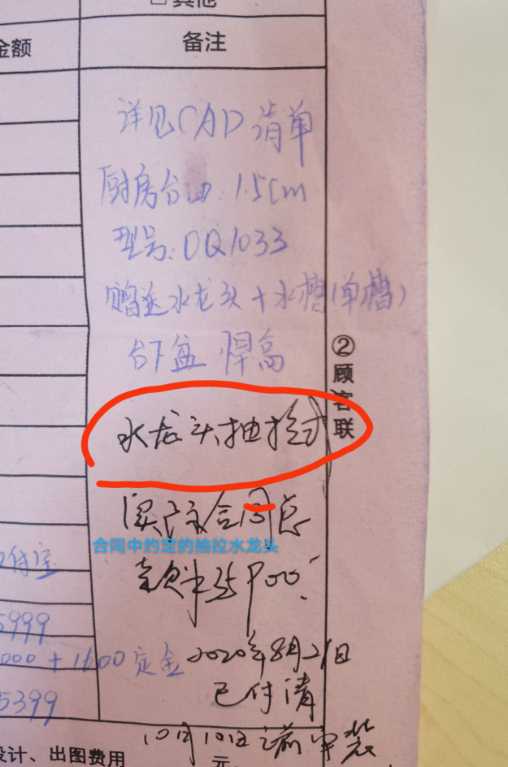 其他
金额
备注
详见CAD清单
厨房台面:1.5cm
型号:OQ1033
赠送水龙头+水槽(单槽)
台下盆.焊高
②顾客联
水龙头抽拉式
合同中约定的抽拉水龙头
合同总
5999
000+1600定金
2020年8月21日
5399
已付清
10月10日前安装
设计、出图费用
元